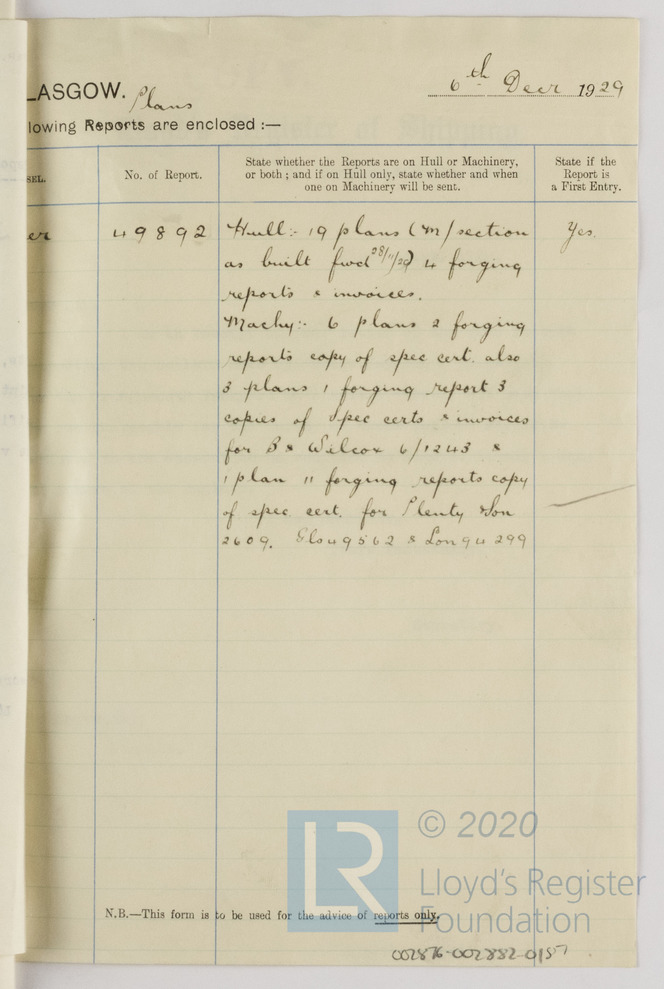 LASGOW. Plans
6th Decr 1929
lowing Reports are enclosed :—
SEL.
No. of Report.
State whether the Reports are on Hull or Machinery,
or both ; and if on Hull only, state whether and when
one on Machinery will be sent.
State if the
Report is
a First Entry.
er
49892
Hull:- 19 plans (M/section
as built fwd 28/11/29) 4 forging
reports & invoices.
Machy:- 6 plans 2 forging
reports copy of spec cert. also
3 plans 1 forging report 3
copies of spec certs & invoices
for B & Wilcox 6/1243 &
1 plan 11 forging reports copy
of spec. cert. for Plenty & Son
2609. Gls 49562 & Lon 94299
Yes.
N.B.—This form is to be used for the advice of reports only.
LR
© 2020
Lloyd's Register
Foundation
002876-002882-0157